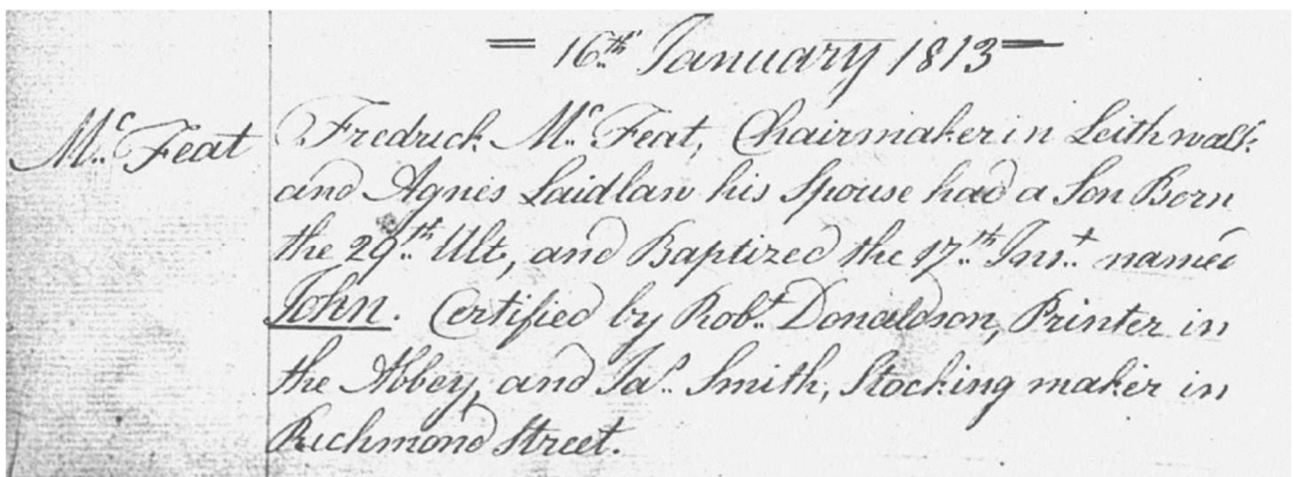 = 16th January 1813 =
McFeat
Fredrick McFeat, Chairmaker in Leithwalk
and Agnes Laidlaw his Spouse had a Son Born
the 29th Ult, and Baptized the 17th Inst. named
John. Certified by Robt. Donaldson, Printer in
the Abbey, and Jas. Smith, Stocking maker in
Richmond Street.